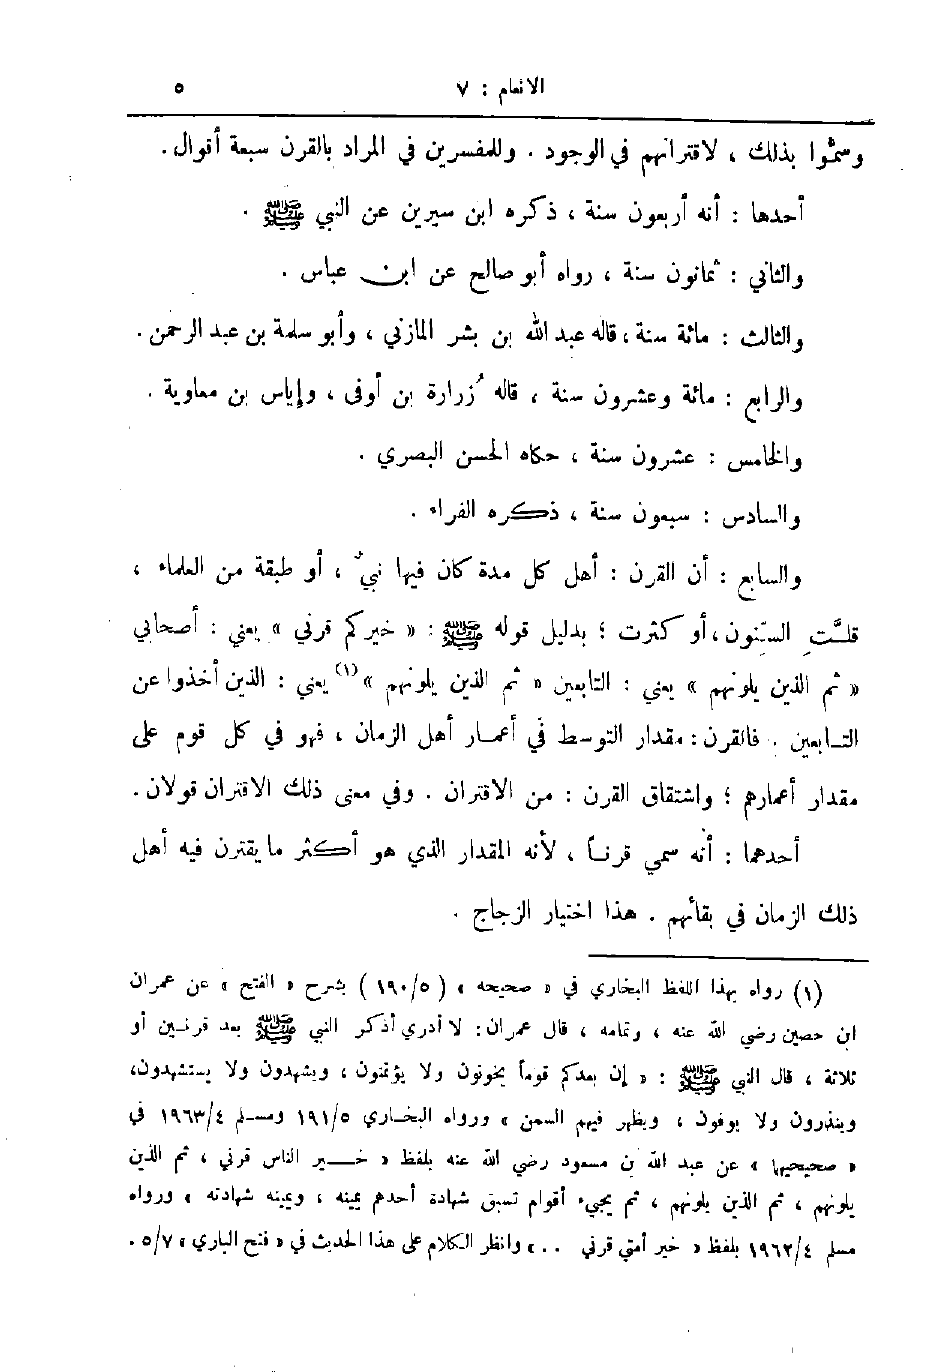 الانعام : ٧ ٥
وسمُّوا بذلك ، لاقترانهم في الوجود . وللمفسرين في المراد بالقرن سبعة أقوال .
أحدها : أنه أربعون سنة ، ذكره ابن سيرين عن النبي ﷺ .
والثاني : ثمانون سنة ، رواه أبو صالح عن ابن عباس .
والثالث : مائة سنة ، قاله عبد الله بن بشر المازني ، وأبو سلمة بن عبد الرحمن .
والرابع : مائة وعشرون سنة ، قاله زُرارة بن أوفى ، وإياس بن معاوية .
والخامس : عشرون سنة ، حكاه الحسن البصري .
والسادس : سبعون سنة ، ذكره الفراء .
والسابع : أن القرن : أهل كل مدة كان فيها نبيٌّ ، أو طبقة من العلماء ،
قلَّت السِّنون ، أو كثرت ؛ بدليل قوله ﷺ : « خيركم قرني » يعني : أصحابي
« ثم الذين يلونهم » يعني : التابعين « ثم الذين يلونهم »(١) يعني : الذين أخذوا عن
التابعين . فالقرن : مقدار التوسط في أعمار أهل الزمان ، فهو في كل قوم على
مقدار أعمارهم ؛ واشتقاق القرن : من الاقتران . وفي معنى ذلك الاقتران قولان .
أحدهما : أنه سمي قرناً ، لأنه المقدار الذي هو أكثر ما يقترن فيه أهل
ذلك الزمان في بقائهم . هذا اختيار الزجاج .
(١) رواه بهذا اللفظ البخاري في « صحيحه » ( ١٩٠/٥ ) بشرح « الفتح » عن عمران
ابن حصين رضي الله عنه ، وتمامه ، قال عمران : لا أدري أذكر النبي ﷺ بعد قرنين أو
ثلاثة ، قال النبي ﷺ : « إن بعدكم قوماً يخونون ولا يؤتمنون ، ويشهدون ولا يستشهدون،
وينذرون ولا يوفون ، ويظهر فيهم السمن » ورواه البخاري ١٩١/٥ ومسلم ١٩٦٣/٤ في
« صحيحيها » عن عبد الله بن مسعود رضي الله عنه بلفظ « خير الناس قرني ، ثم الذين
يلونهم ، ثم الذين يلونهم ، ثم يجيء أقوام تسبق شهادة أحدهم يمينه ، ويمينه شهادته » ورواه
مسلم ١٩٦٢/٤ بلفظ « خير أمتي قرني .. » وانظر الكلام على هذا الحديث في « فتح الباري » ٥/٧ .